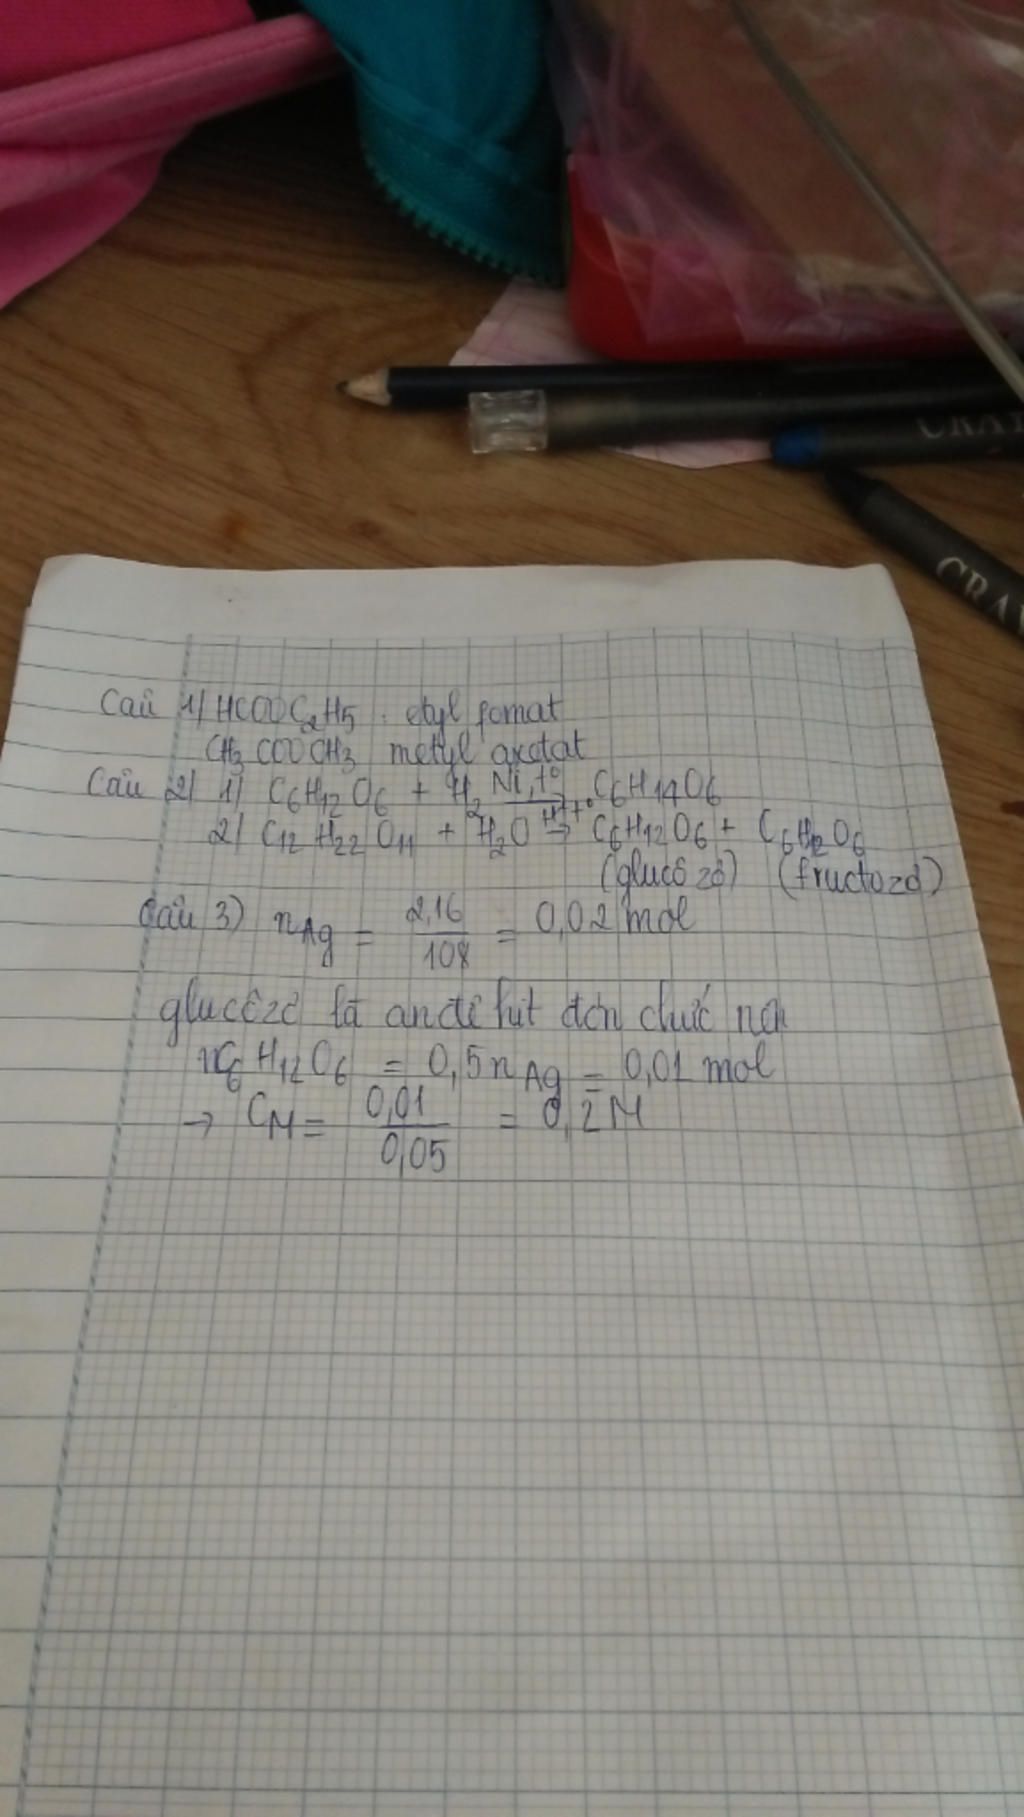 CRA
CRA
Câu 1/ HCOOC2H5 : etyl fomat
CH3COOCH3 metyl axetat
Câu 2/ 1/ C6H12O6 + H2 Ni,t° → C6H14O6
2/ C12H22O11 + H2O H+,t° → C6H12O6 + C6H12O6
(glucôzơ) (fructozơ)
Câu 3) nAg = 2,16/108 = 0,02 mol
glucôzơ là anđêhit đơn chức nên
nC6H12O6 = 0,5nAg = 0,01 mol
→ CM = 0,01/0,05 = 0,2M